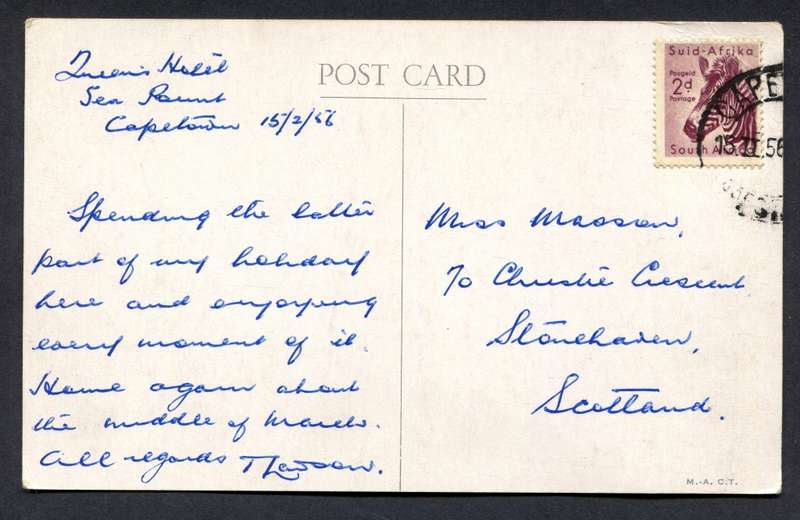 Queens Hotel
Sea Point
Capetown 15/2/56
POST CARD
Suid-Afrika
Posgeld
2d
Postage
South Africa
CAPE
15 II 56
Spending the latter
part of my holiday
here and enjoying
every moment of it.
Home again about
the middle of March.
All regards T Lawson.
Miss Masson,
70 Christie Crescent
Stonehaven,
Scotland.
M.-A. C.T.